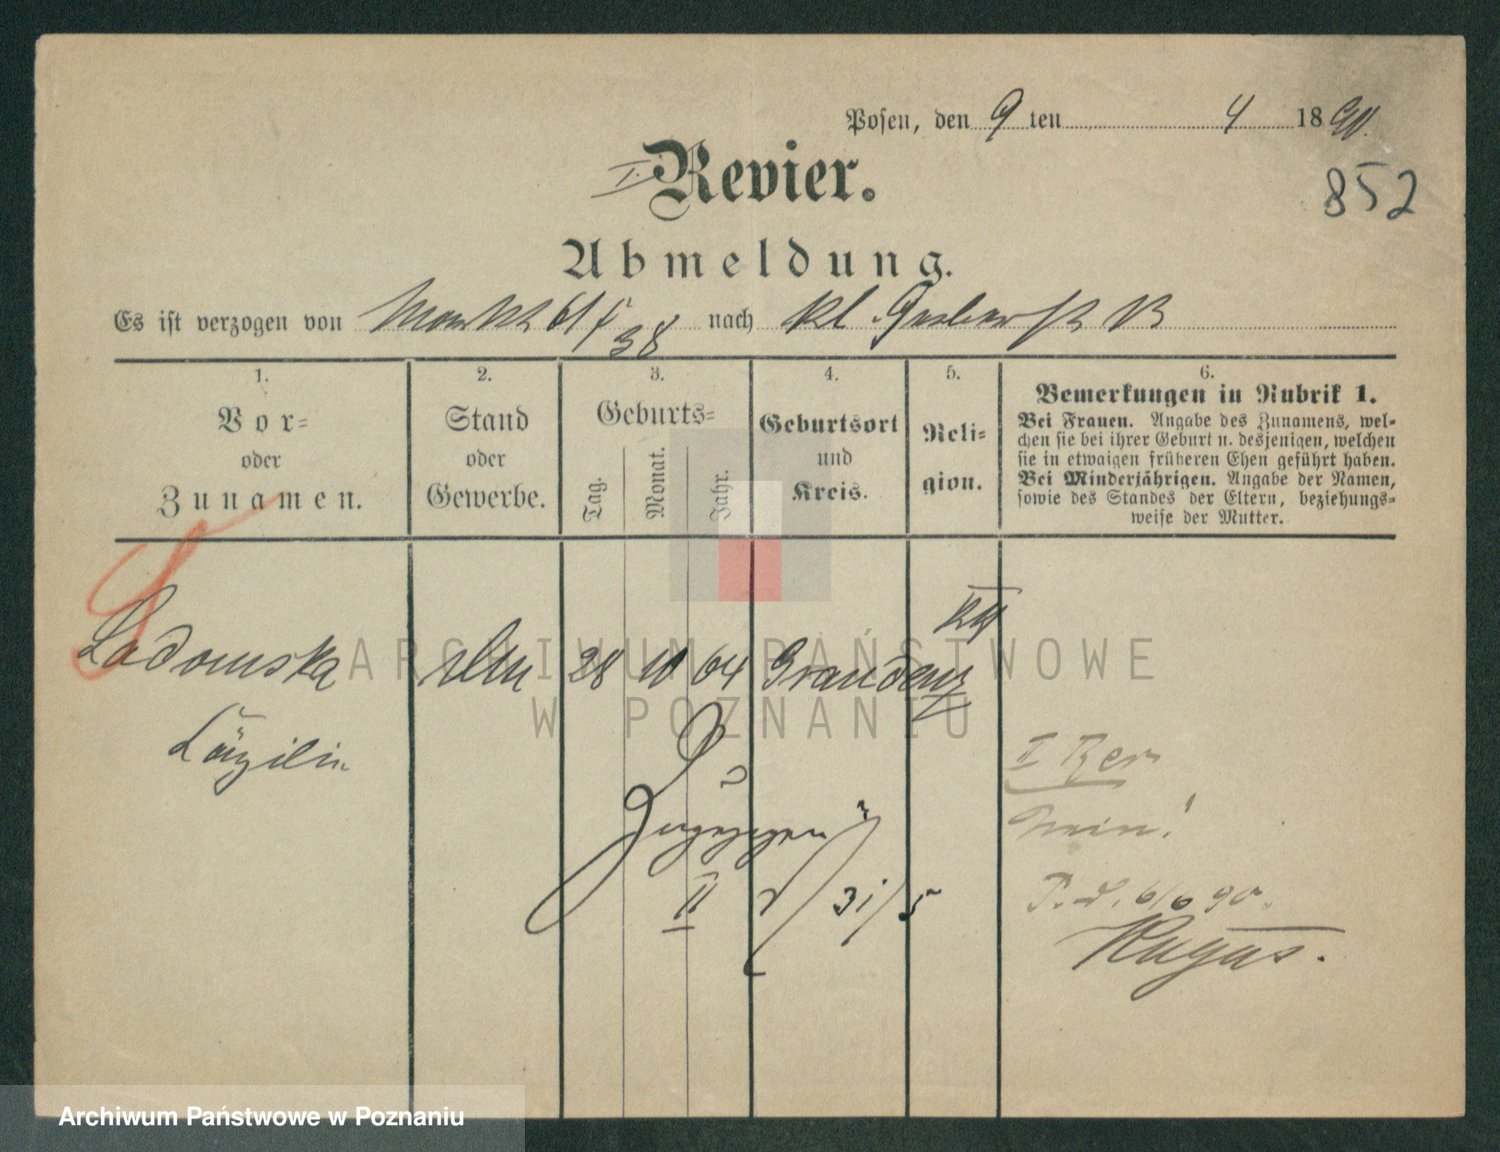 Posen, den 9 ten 4 1890.
852
I. Revier.
Abmeldung.
Es ist verzogen von Markt 61/ 38 nach kl. Gerberstr 13
1. 2. 3. 4. 5. 6.
Vor- oder Zunamen.
Stand oder Gewerbe.
Geburts-
Tag. Monat. Jahr.
Geburtsort und Kreis.
Reli-
gion.
Bemerkungen in Rubrik 1.
Bei Frauen. Angabe des Zunamens, wel-
chen sie bei ihrer Geburt u. desjenigen, welchen
sie in etwaigen früheren Ehen geführt haben.
Bei Minderjährigen. Angabe der Namen,
sowie des Standes der Eltern, beziehungs-
weise der Mutter.
Ladomska 28 10 64 Graudenz kth
Cäzilie
Zugezogen
II 31/5
I Rev
Nein!
P. d. 6/6 90.
ARCHIWUM PAŃSTWOWE
W POZNANIU
Archiwum Państwowe w Poznaniu